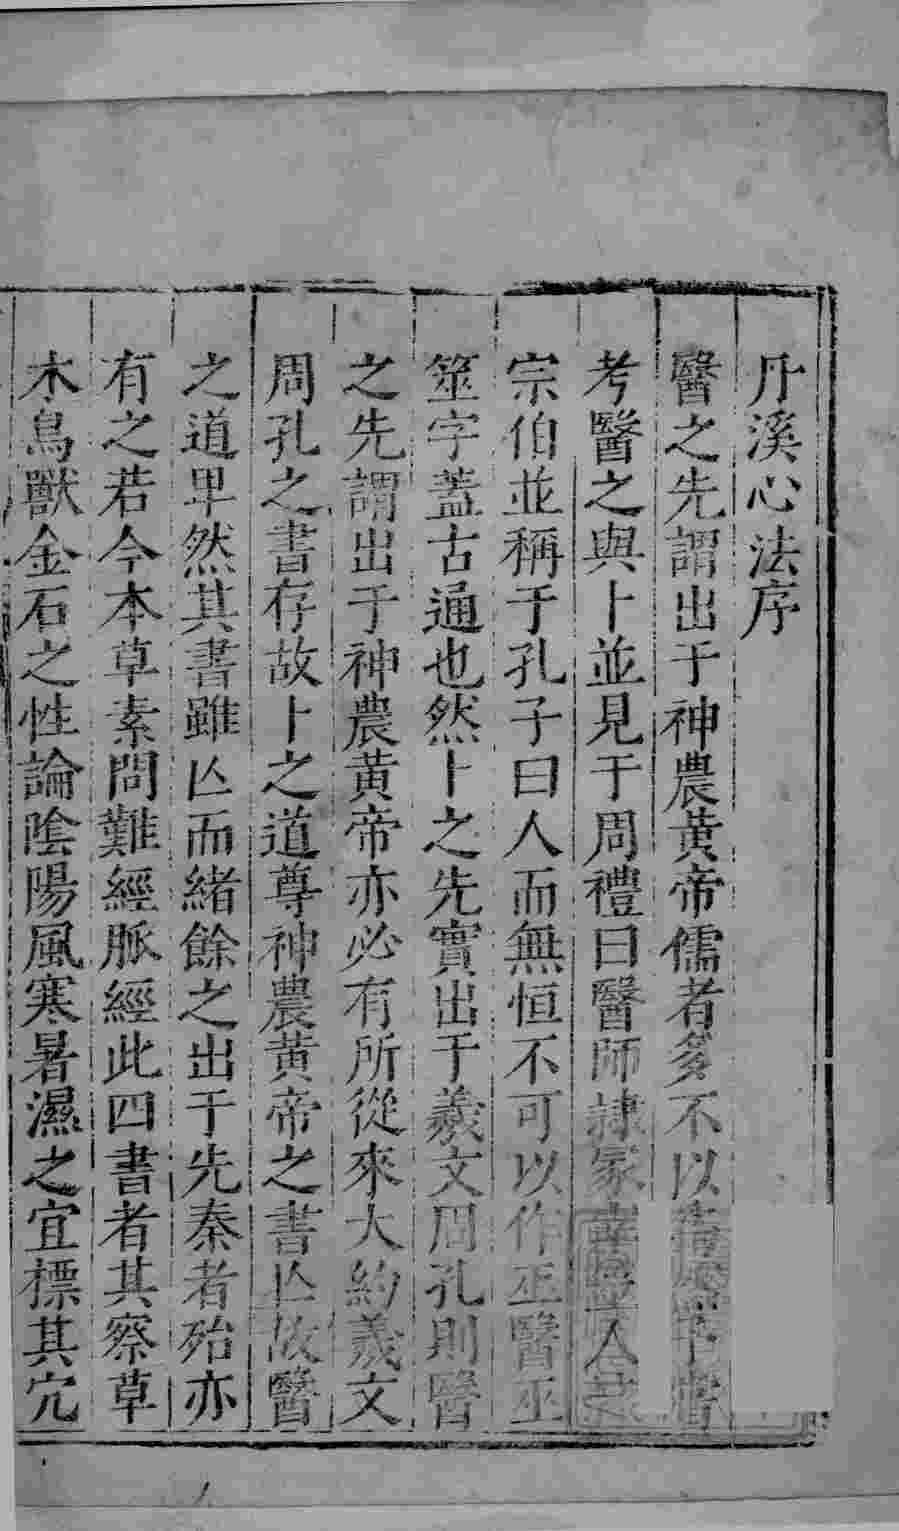 丹溪心法序
醫之先謂出于神農黃帝儒者多不以
考醫之與卜並見于周禮曰醫師隷冢宰人
宗伯並稱于孔子曰人而無恒不可以作巫醫巫
筮字蓋古通也然卜之先實出于羲文周孔則醫
之先謂出于神農黃帝亦必有所從來大約羲文
周孔之書存故卜之道尊神農黃帝之書亾故醫
之道卑然其書雖亾而緒餘之出于先秦者殆亦
有之若今本草素問難經脈經此四書者其察草
木鳥獸金石之性論陰陽風寒暑濕之宜標其穴